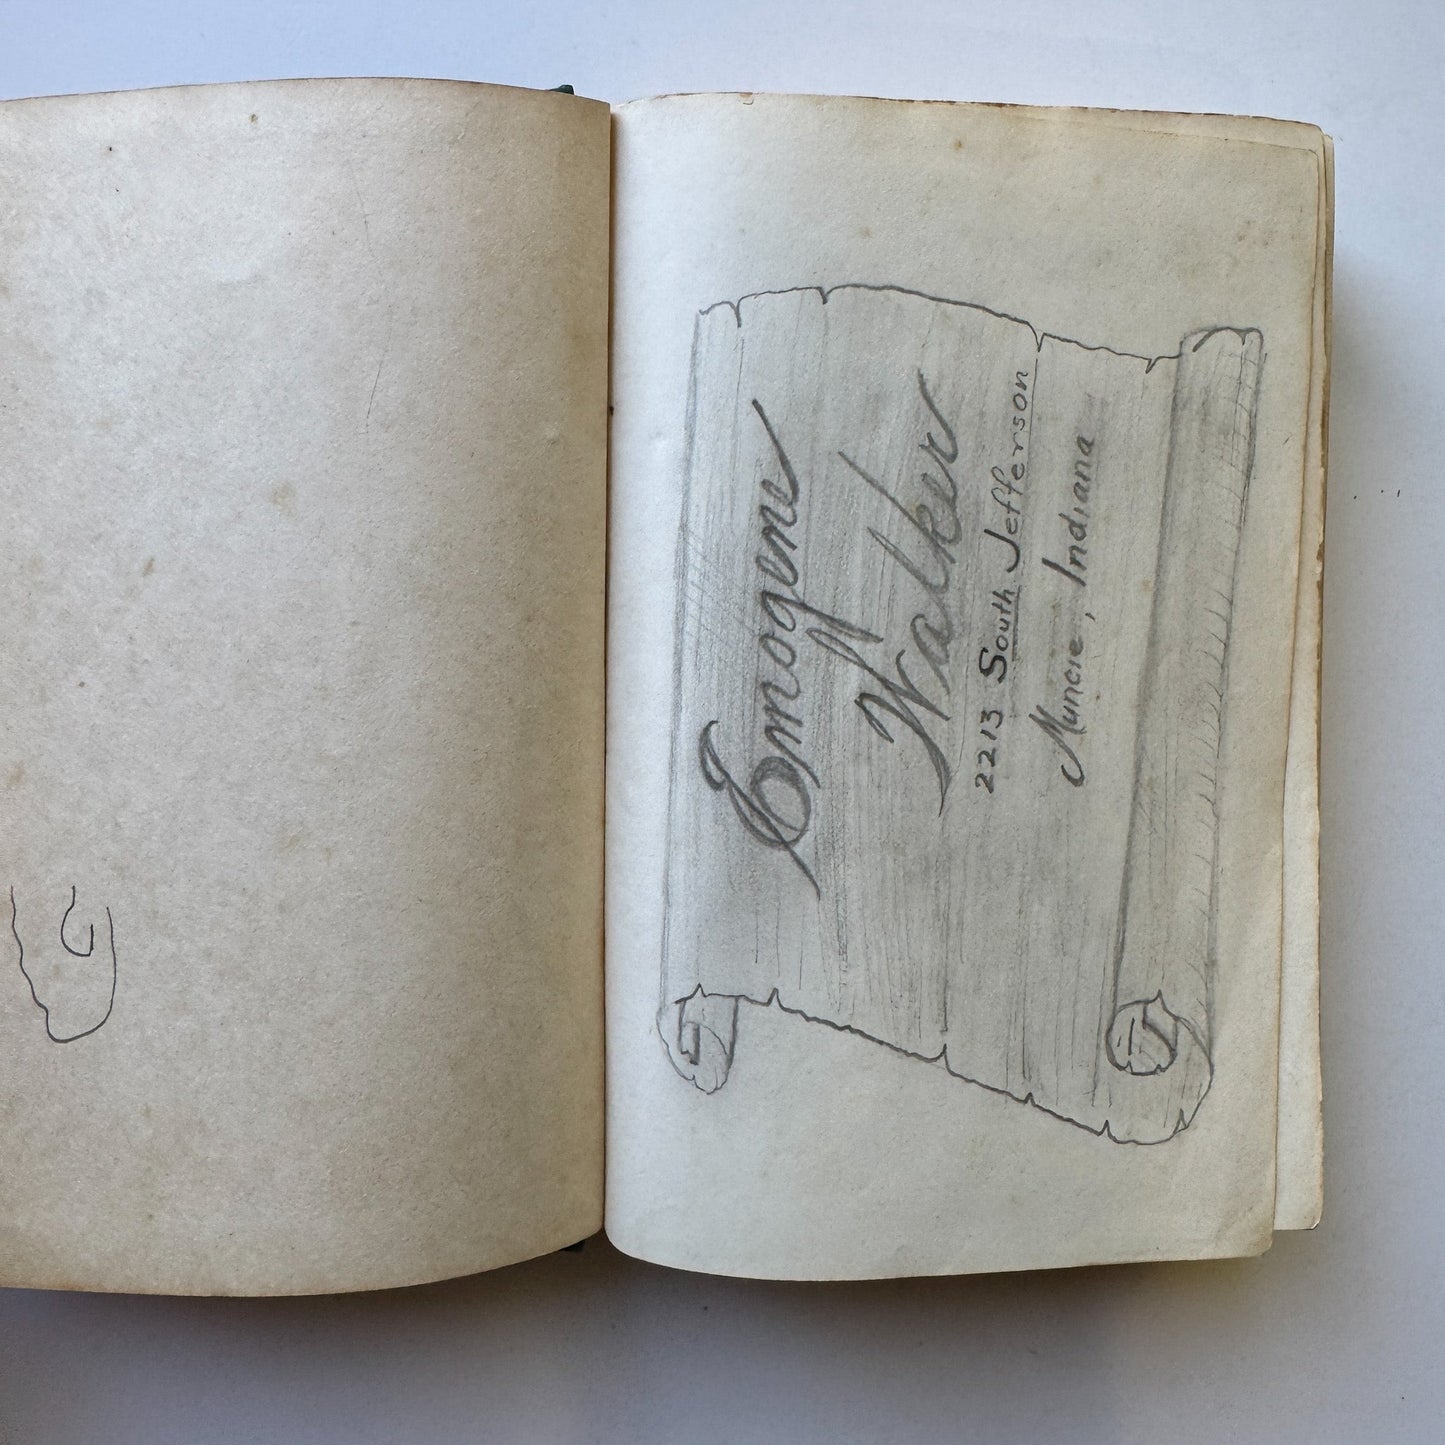 Emogene
Walker
2213 South Jefferson
Muncie, Indiana